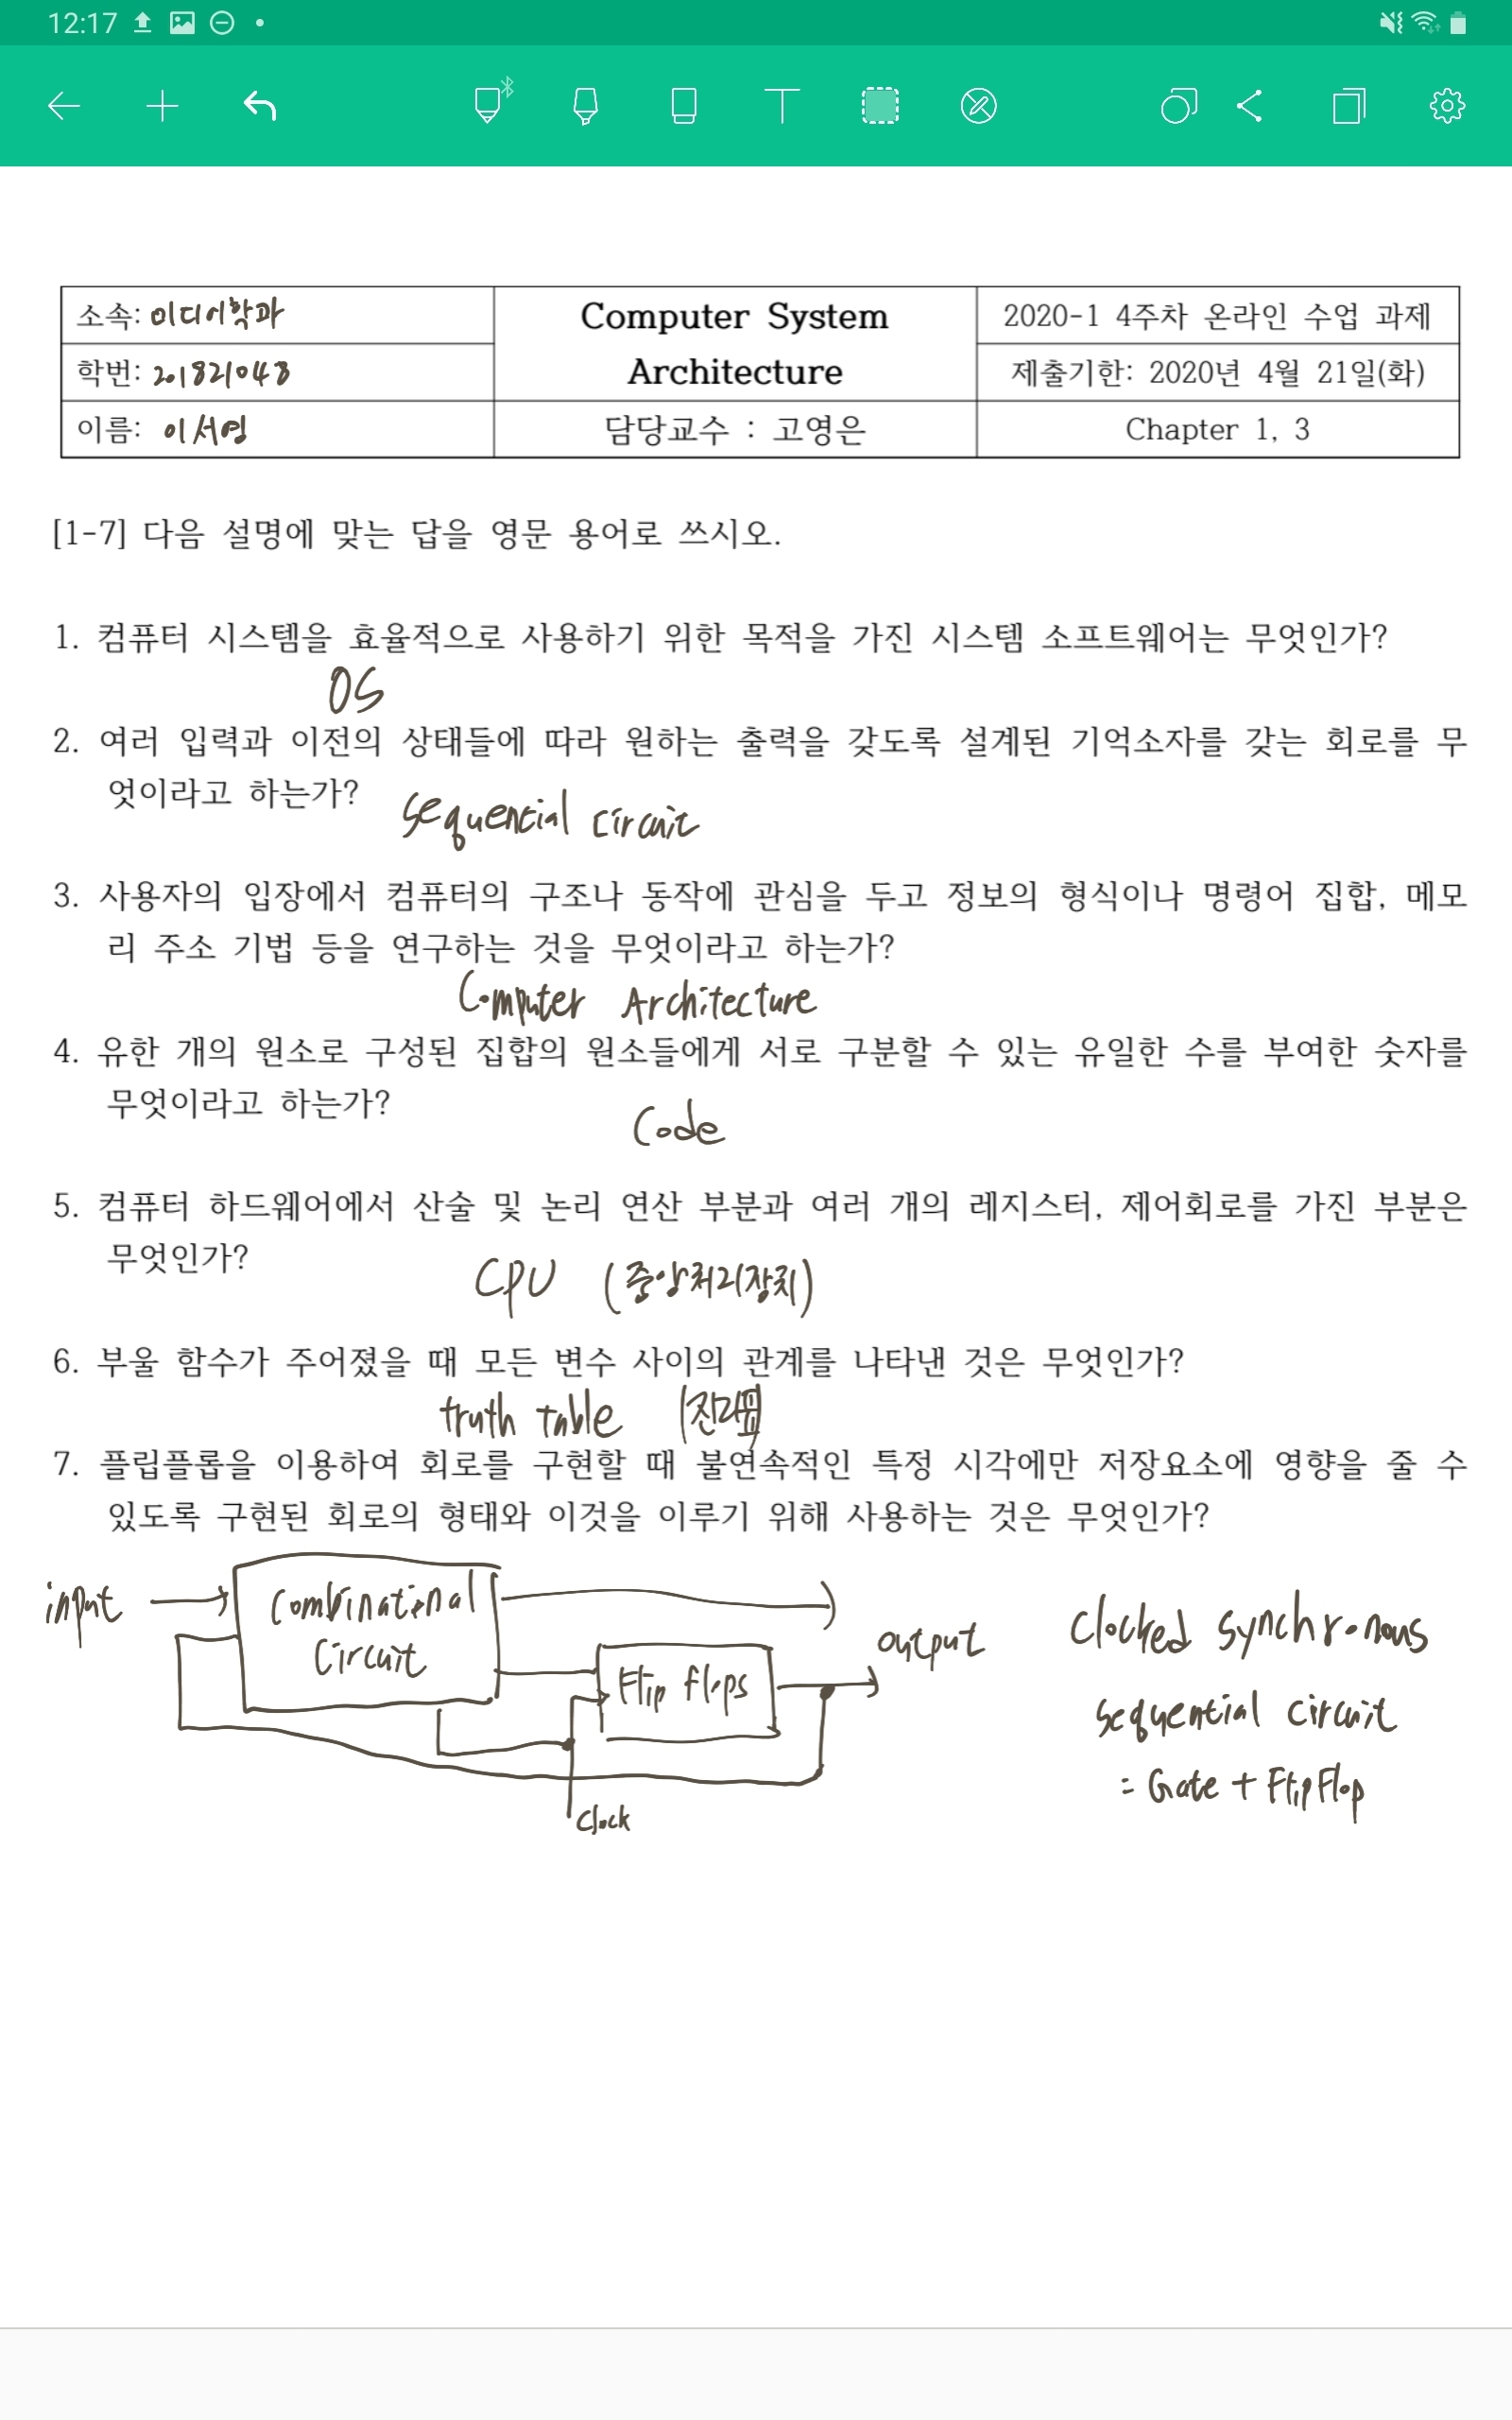 12:17
소속: 미디어학과
Computer System
Architecture
2020-1 4주차 온라인 수업 과제
학번: 201821048
제출기한: 2020년 4월 21일(화)
이름: 이서영
담당교수 : 고영은
Chapter 1, 3
[1-7] 다음 설명에 맞는 답을 영문 용어로 쓰시오.
1. 컴퓨터 시스템을 효율적으로 사용하기 위한 목적을 가진 시스템 소프트웨어는 무엇인가?
OS
2. 여러 입력과 이전의 상태들에 따라 원하는 출력을 갖도록 설계된 기억소자를 갖는 회로를 무
엇이라고 하는가?
sequential circuit
3. 사용자의 입장에서 컴퓨터의 구조나 동작에 관심을 두고 정보의 형식이나 명령어 집합, 메모
리 주소 기법 등을 연구하는 것을 무엇이라고 하는가?
Computer Architecture
4. 유한 개의 원소로 구성된 집합의 원소들에게 서로 구분할 수 있는 유일한 수를 부여한 숫자를
무엇이라고 하는가?
Code
5. 컴퓨터 하드웨어에서 산술 및 논리 연산 부분과 여러 개의 레지스터, 제어회로를 가진 부분은
무엇인가?
CPU (중앙처리장치)
6. 부울 함수가 주어졌을 때 모든 변수 사이의 관계를 나타낸 것은 무엇인가?
truth table (진리표)
7. 플립플롭을 이용하여 회로를 구현할 때 불연속적인 특정 시각에만 저장요소에 영향을 줄 수
있도록 구현된 회로의 형태와 이것을 이루기 위해 사용하는 것은 무엇인가?
input
Combinational
Circuit
Flip flops
output
Clock
Clocked synchronous
sequential circuit
= Gate + FlipFlop